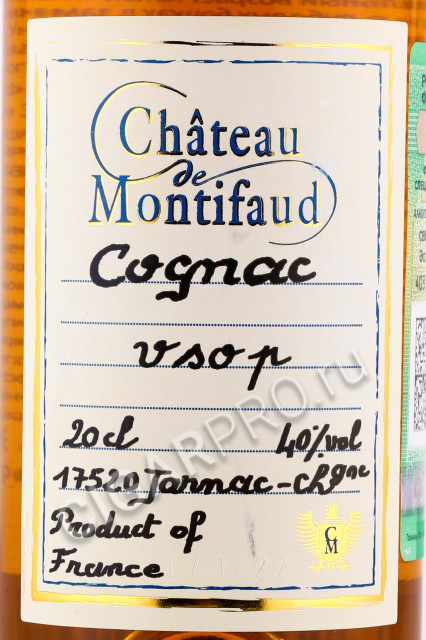 Château
de
Montifaud
Cognac
VSOP
20cl 40%vol
17520 Jarnac-Chgne
Product of
France
CM
CIGARPRO.ru